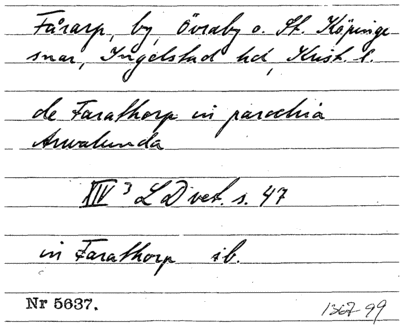 Fårarp, by, Övraby o. St. Köpinge
snar, Ingelstad hd, Krist. l.
de Farathorp in parochia
Arwalunda
XIV 3 LD vet. s. 47
in Farathorp ib.
Nr 5637.
99